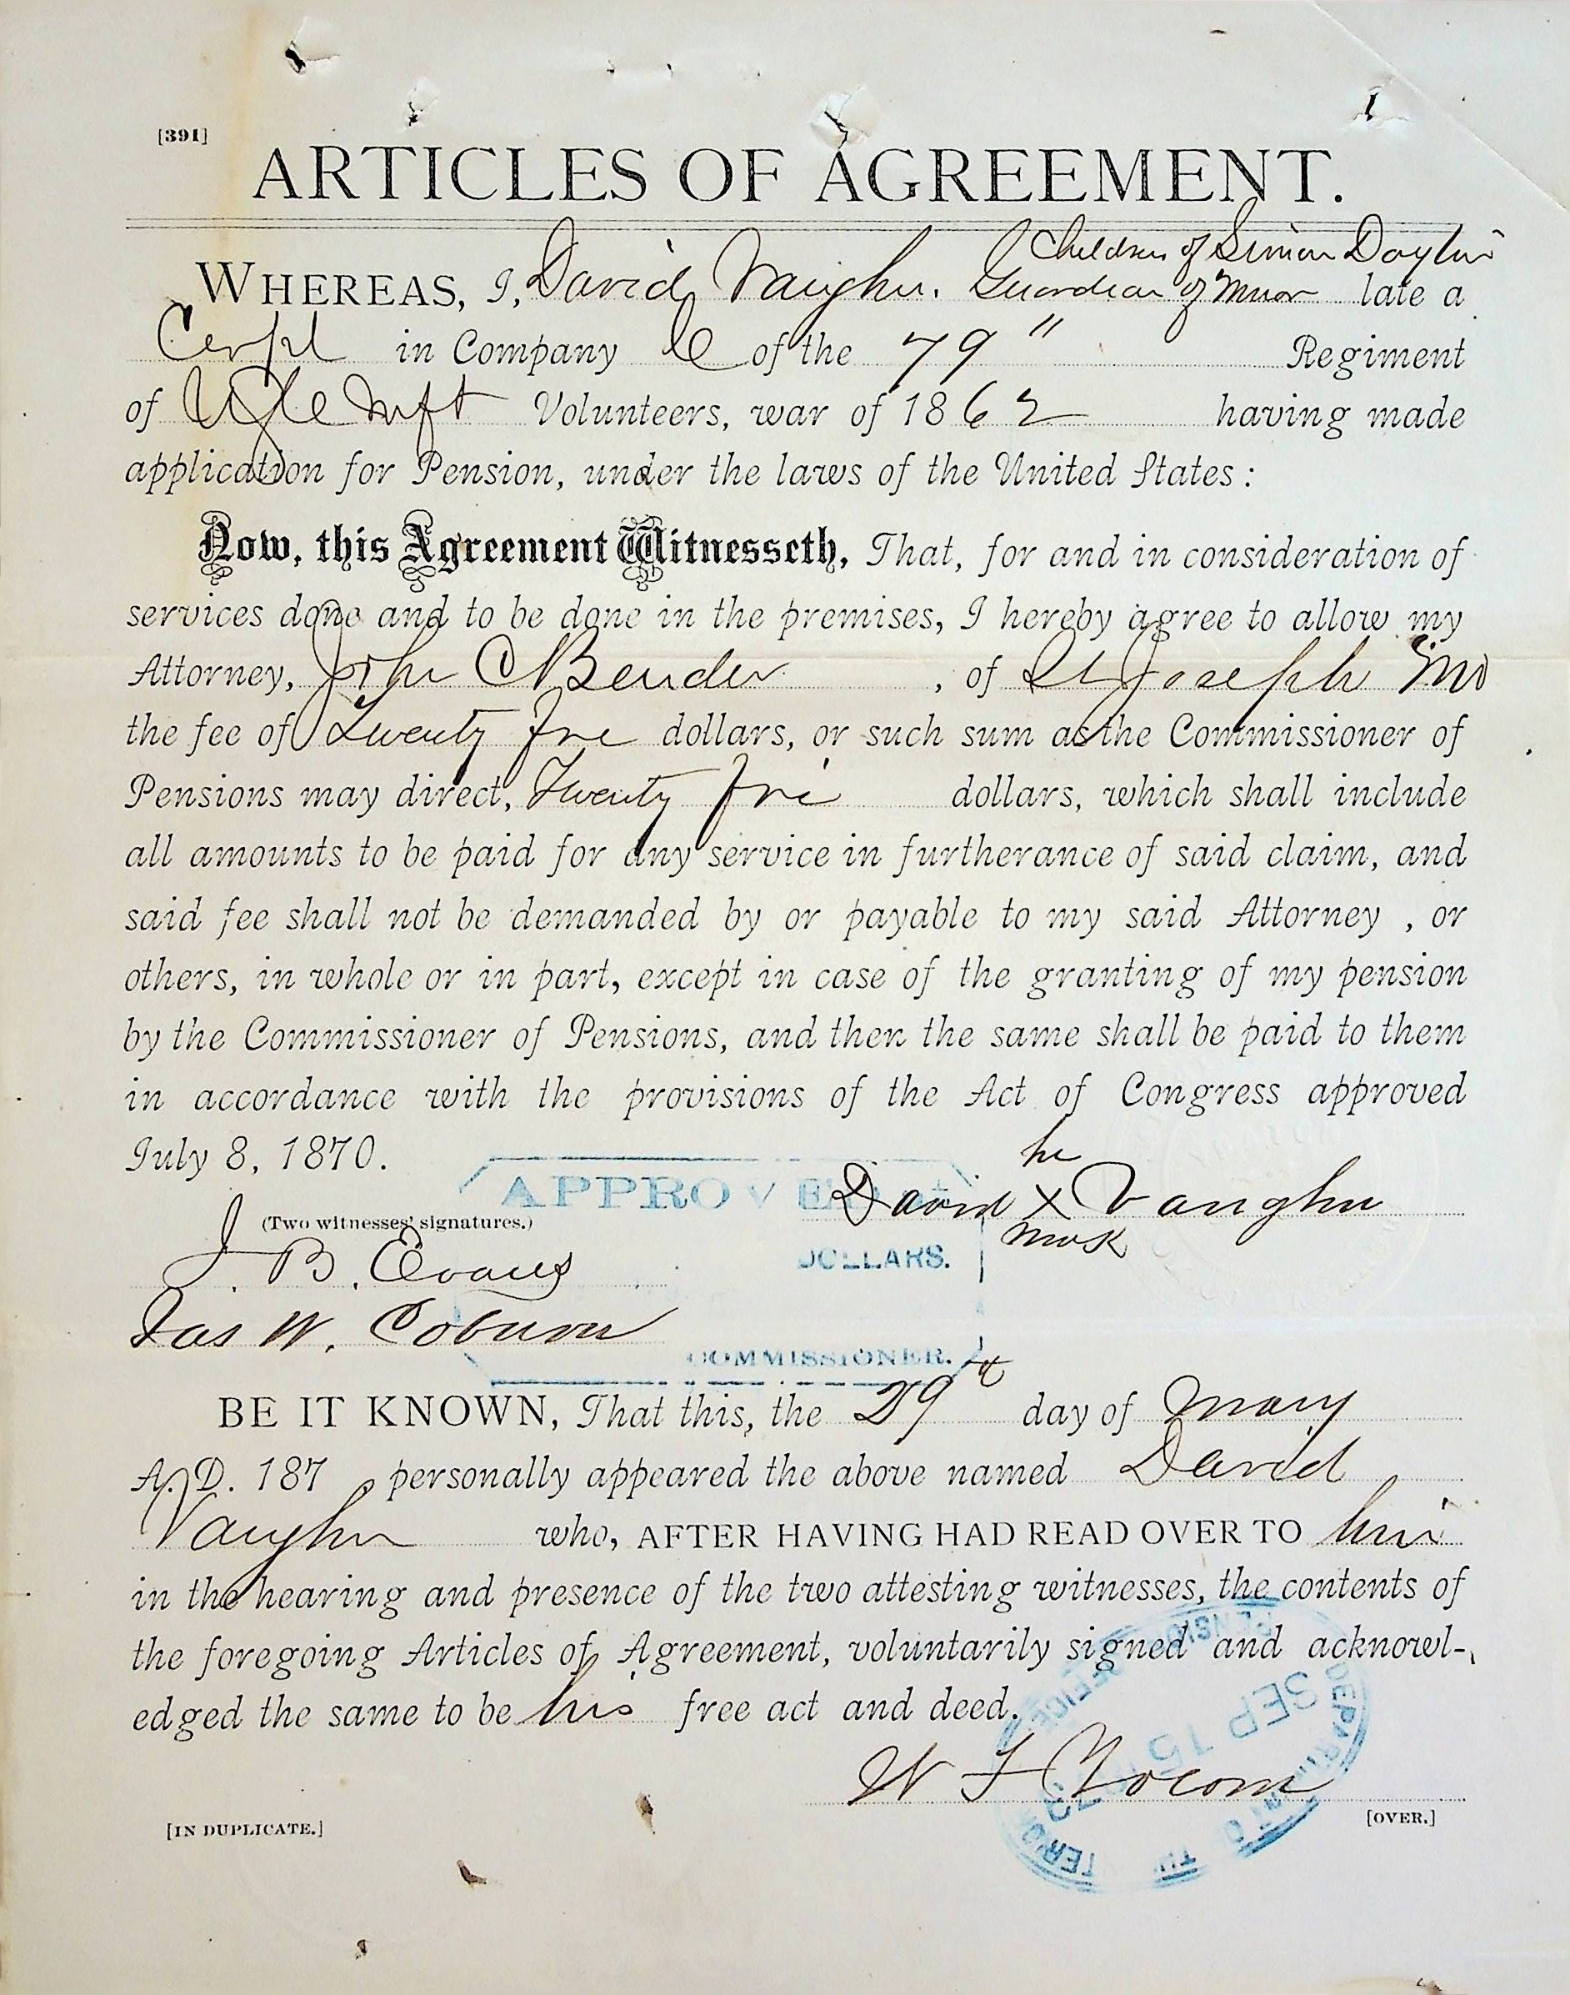 [391]
ARTICLES OF AGREEMENT.
Children of Simon
WHEREAS, I, David Vaughn. Guardian of Minor late a
Corpl in Company of the 79" Regiment
of Volunteers, war of 1862 having made
application for Pension, under the laws of the United States:
Now, this Agreement Witnesseth, That, for and in consideration of
services done and to be done in the premises, I hereby agree to allow my
Attorney, John C Bender , of St Joseph Mo
the fee of Twenty five dollars, or such sum as the Commissioner of
Pensions may direct, Twenty five dollars, which shall include
all amounts to be paid for any service in furtherance of said claim, and
said fee shall not be demanded by or payable to my said Attorney , or
others, in whole or in part, except in case of the granting of my pension
by the Commissioner of Pensions, and then the same shall be paid to them
in accordance with the provisions of the Act of Congress approved
July 8, 1870.
his
APPROVED
David X Vaughn
mark
(Two witnesses' signatures.)
DOLLARS.
J. B. Evans
Jas W. Coburn
COMMISSIONER.
BE IT KNOWN, That this, the 29th day of May
A. D. 187 personally appeared the above named David
Vaughn who, AFTER HAVING HAD READ OVER TO him
in the hearing and presence of the two attesting witnesses, the contents of
the foregoing Articles of Agreement, voluntarily signed and acknowl-
edged the same to be his free act and deed.
W F Yocom
SEP 15
PENSION OFFICE
[IN DUPLICATE.]
[OVER.]